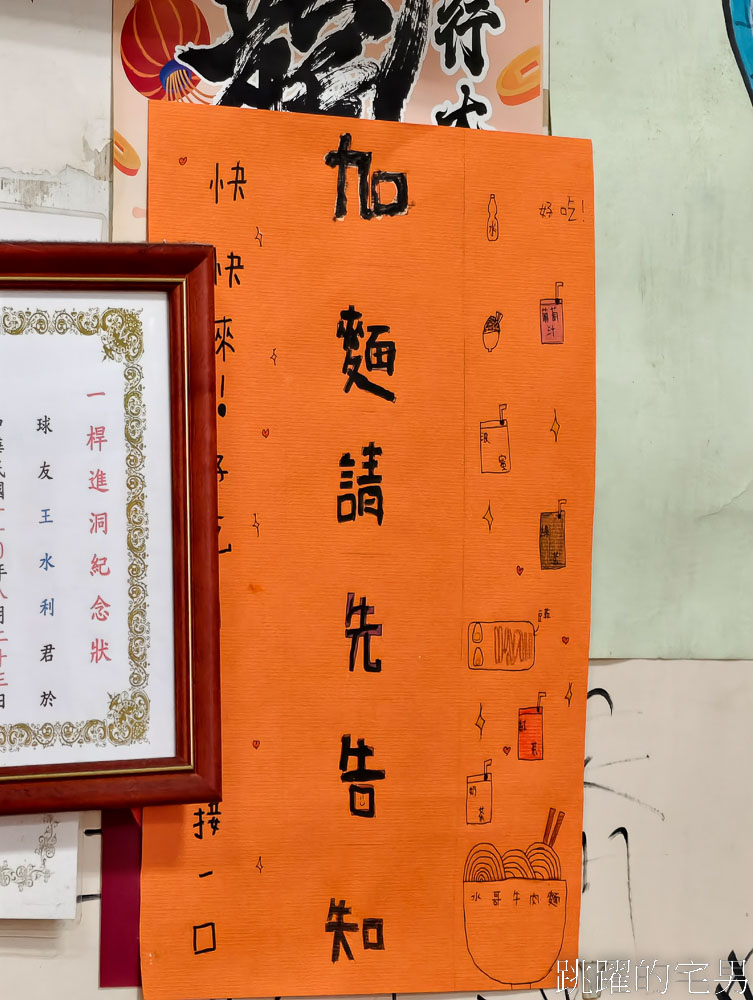 行大
加麵請先告知
快快來！好吃
接一口
好吃！
水
葡萄汁
波蜜
紅茶
奶茶
水哥牛肉麵
一桿進洞紀念狀
球友王水利君於
跳躍的宅男